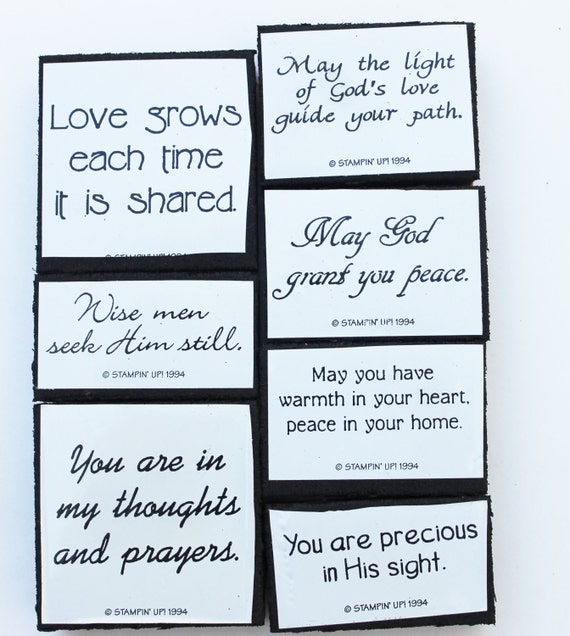 Love grows
each time
it is shared.
© STAMPIN' UP! 1994
Wise men
seek Him still.
© STAMPIN' UP! 1994
You are in
my thoughts
and prayers.
© STAMPIN' UP! 1994
May the light
of God's love
guide your path.
© STAMPIN' UP! 1994
May God
grant you peace.
© STAMPIN' UP! 1994
May you have
warmth in your heart,
peace in your home.
© STAMPIN' UP! 1994
You are precious
in His sight.
© STAMPIN' UP! 1994